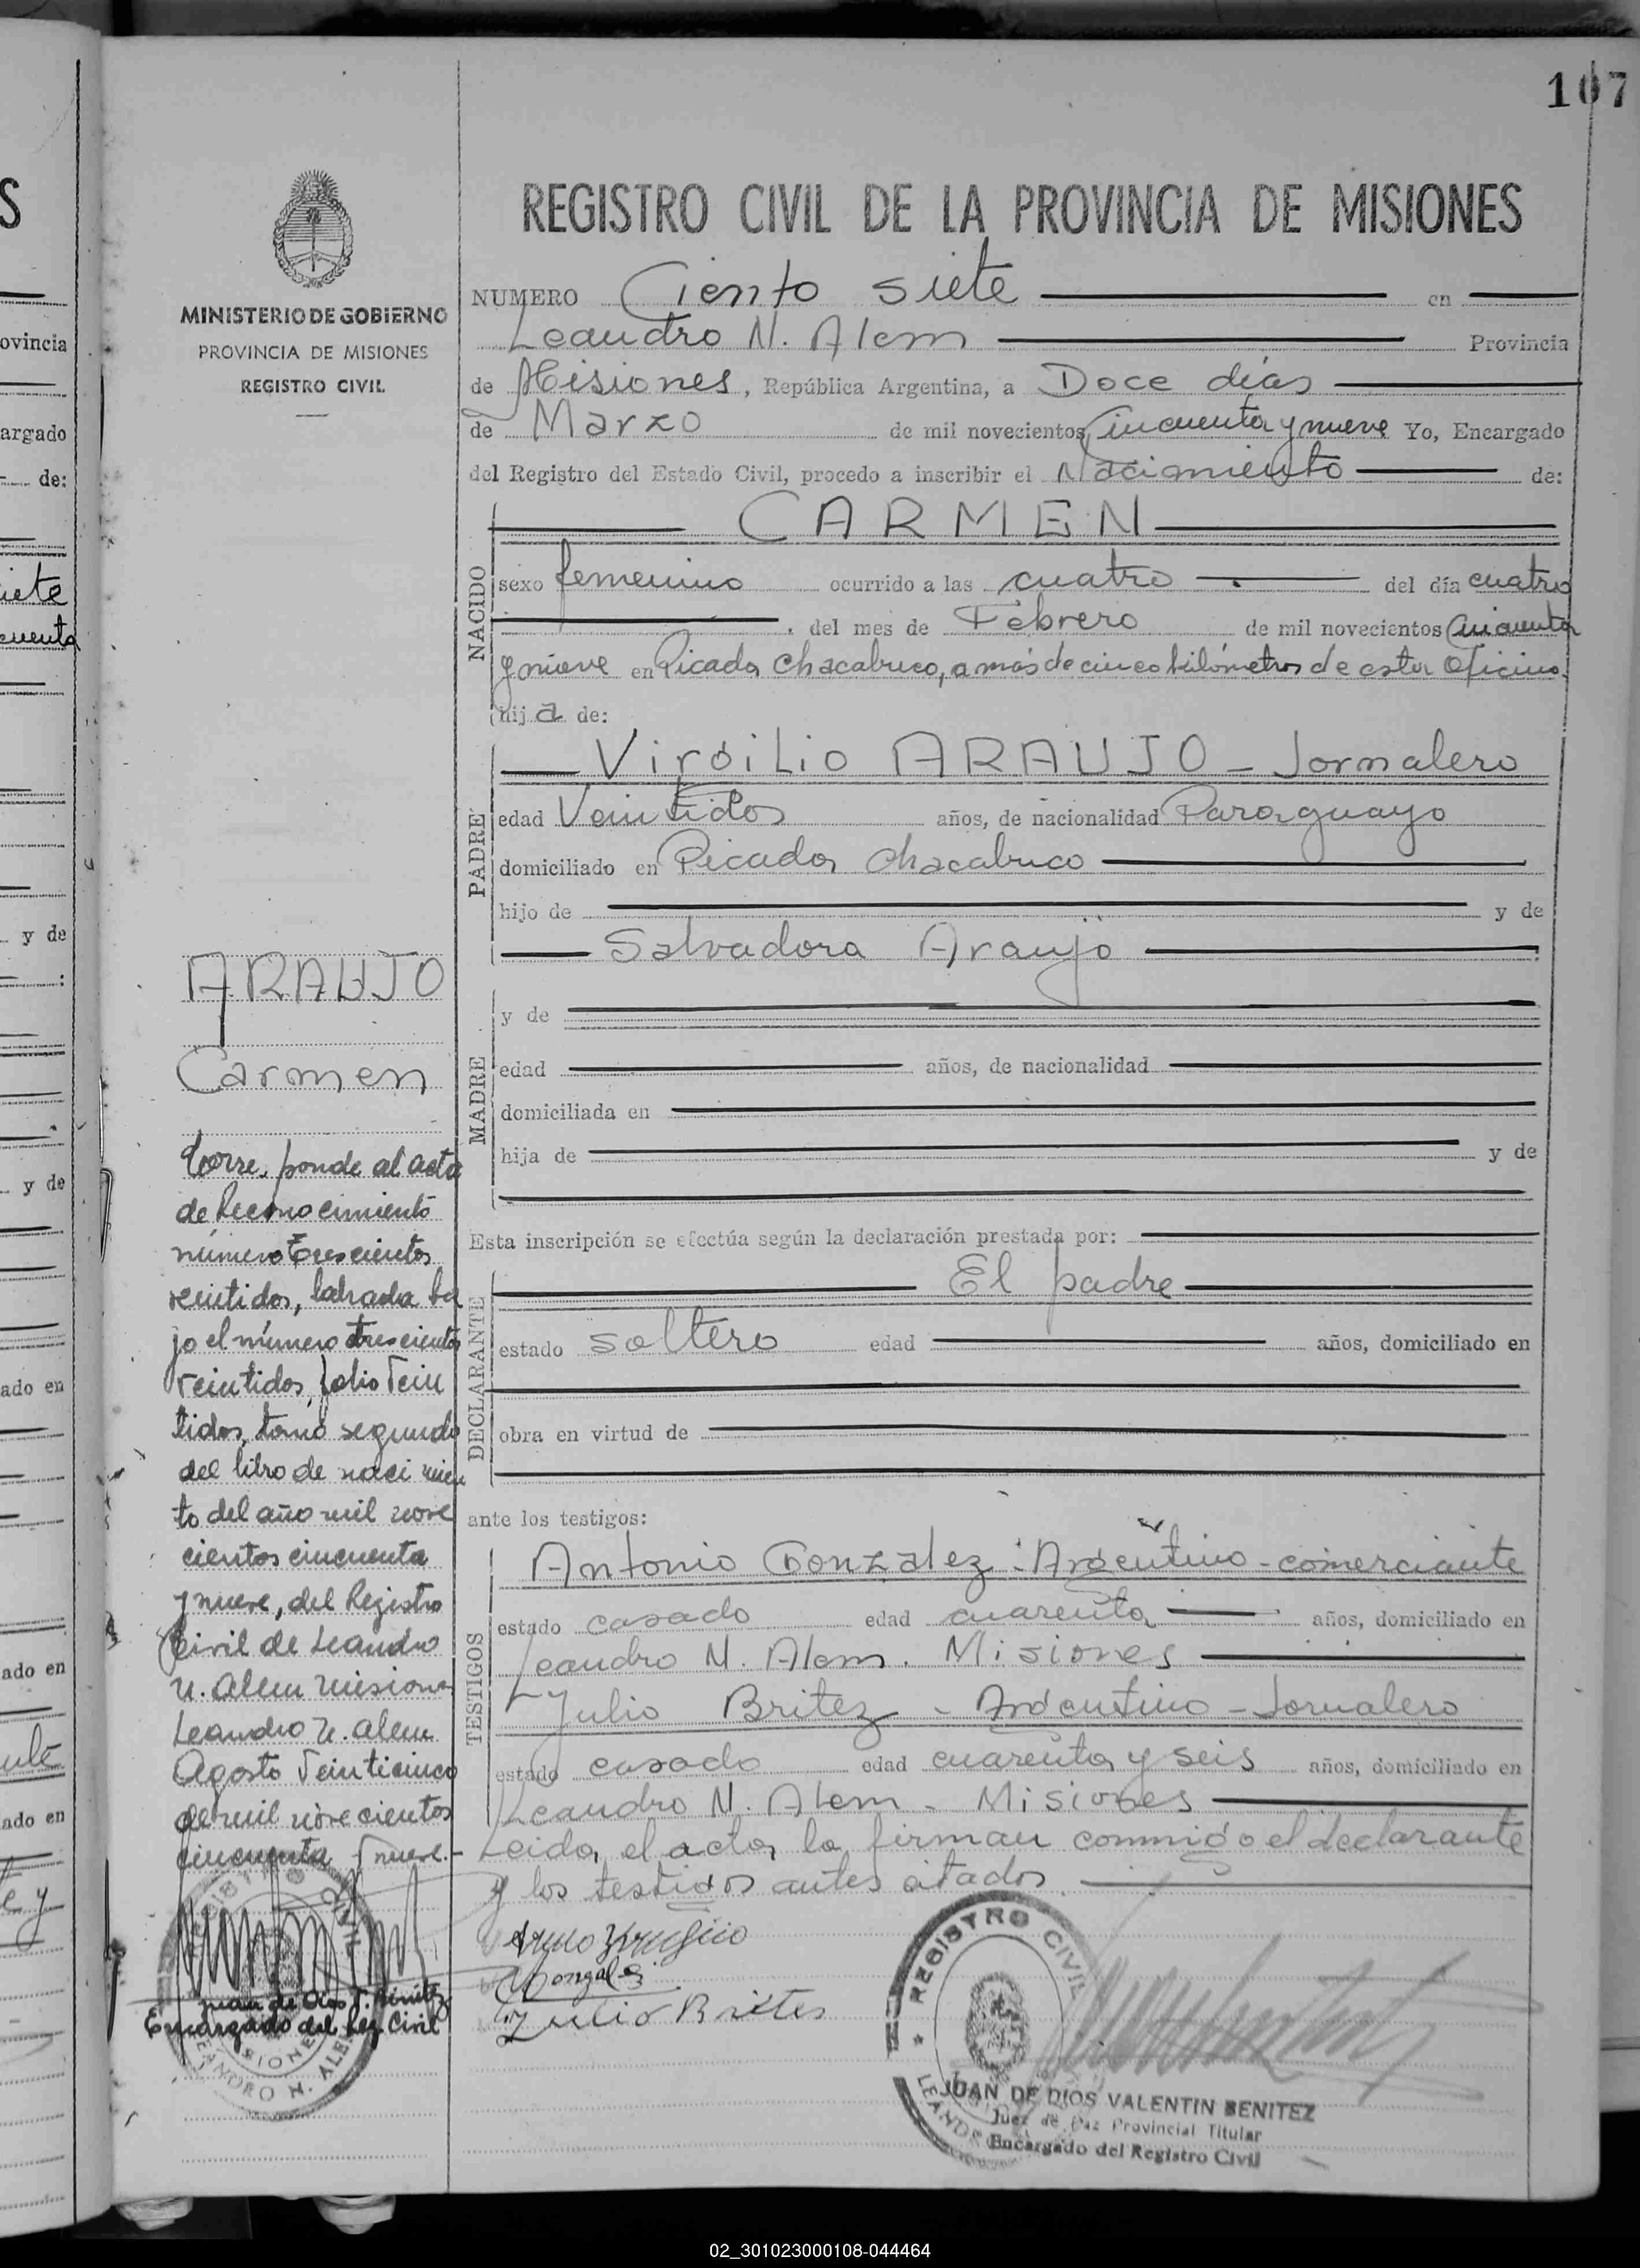 107
REGISTRO CIVIL DE LA PROVINCIA DE MISIONES
MINISTERIO DE GOBIERNO
PROVINCIA DE MISIONES
REGISTRO CIVIL
NUMERO Ciento siete en
Leandro N. Alem Provincia
de Misiones, República Argentina, a Doce días
de Marzo de mil novecientos Cincuenta y nueve Yo, Encargado
del Registro del Estado Civil, procedo a inscribir el Nacimiento de:
NACIDO
CARMEN
sexo femenino ocurrido a las cuatro del día cuatro
del mes de Febrero de mil novecientos Cincuenta
y nueve en Picada Chacabuco, a más de cinco kilómetros de esta Oficina.
hija de:
PADRE
Virgilio ARAUJO - Jornalero
edad Veintidos años, de nacionalidad Paraguayo
domiciliado en Picada Chacabuco
hijo de y de
Salvadora Araujo
MADRE
y de
edad años, de nacionalidad
domiciliada en
hija de y de
Esta inscripción se efectúa según la declaración prestada por:
DECLARANTE
El padre
estado soltero edad años, domiciliado en
obra en virtud de
ante los testigos:
TESTIGOS
Antonio Gonzalez - Argentino - comerciante
estado casado edad cuarenta años, domiciliado en
Leandro N. Alem. Misiones
Julio Britez - Argentino - Jornalero
estado casado edad cuarenta y seis años, domiciliado en
Leandro N. Alem - Misiones
Leida el acta, la firman conmigo el declarante
y los testigos antes citados.
Gonzalez
Julio Brites
REGISTRO CIVIL
JUAN DE DIOS VALENTIN BENITEZ
Juez de Paz Provincial Titular
Encargado del Registro Civil
ARAUJO
Carmen
Corresponde al acta
de Reconocimiento
número trescientos
veintidos, labrada ba
jo el número trescientos
veintidos, folio Vein
tidos, tomo segundo
del libro de nacimien
to del año mil nove
cientos cincuenta
y nueve, del Registro
Civil de Leandro
N. Alem Misiones
Leandro N. Alem
Agosto Veinticinco
de mil novecientos
cincuenta y nueve.-
Juan de Dios V. Benitez
Encargado del Reg Civil
ovincia
argado
de:
iete
cuenta
y de
y de
ado en
ado en
ado en
02_301023000108-044464